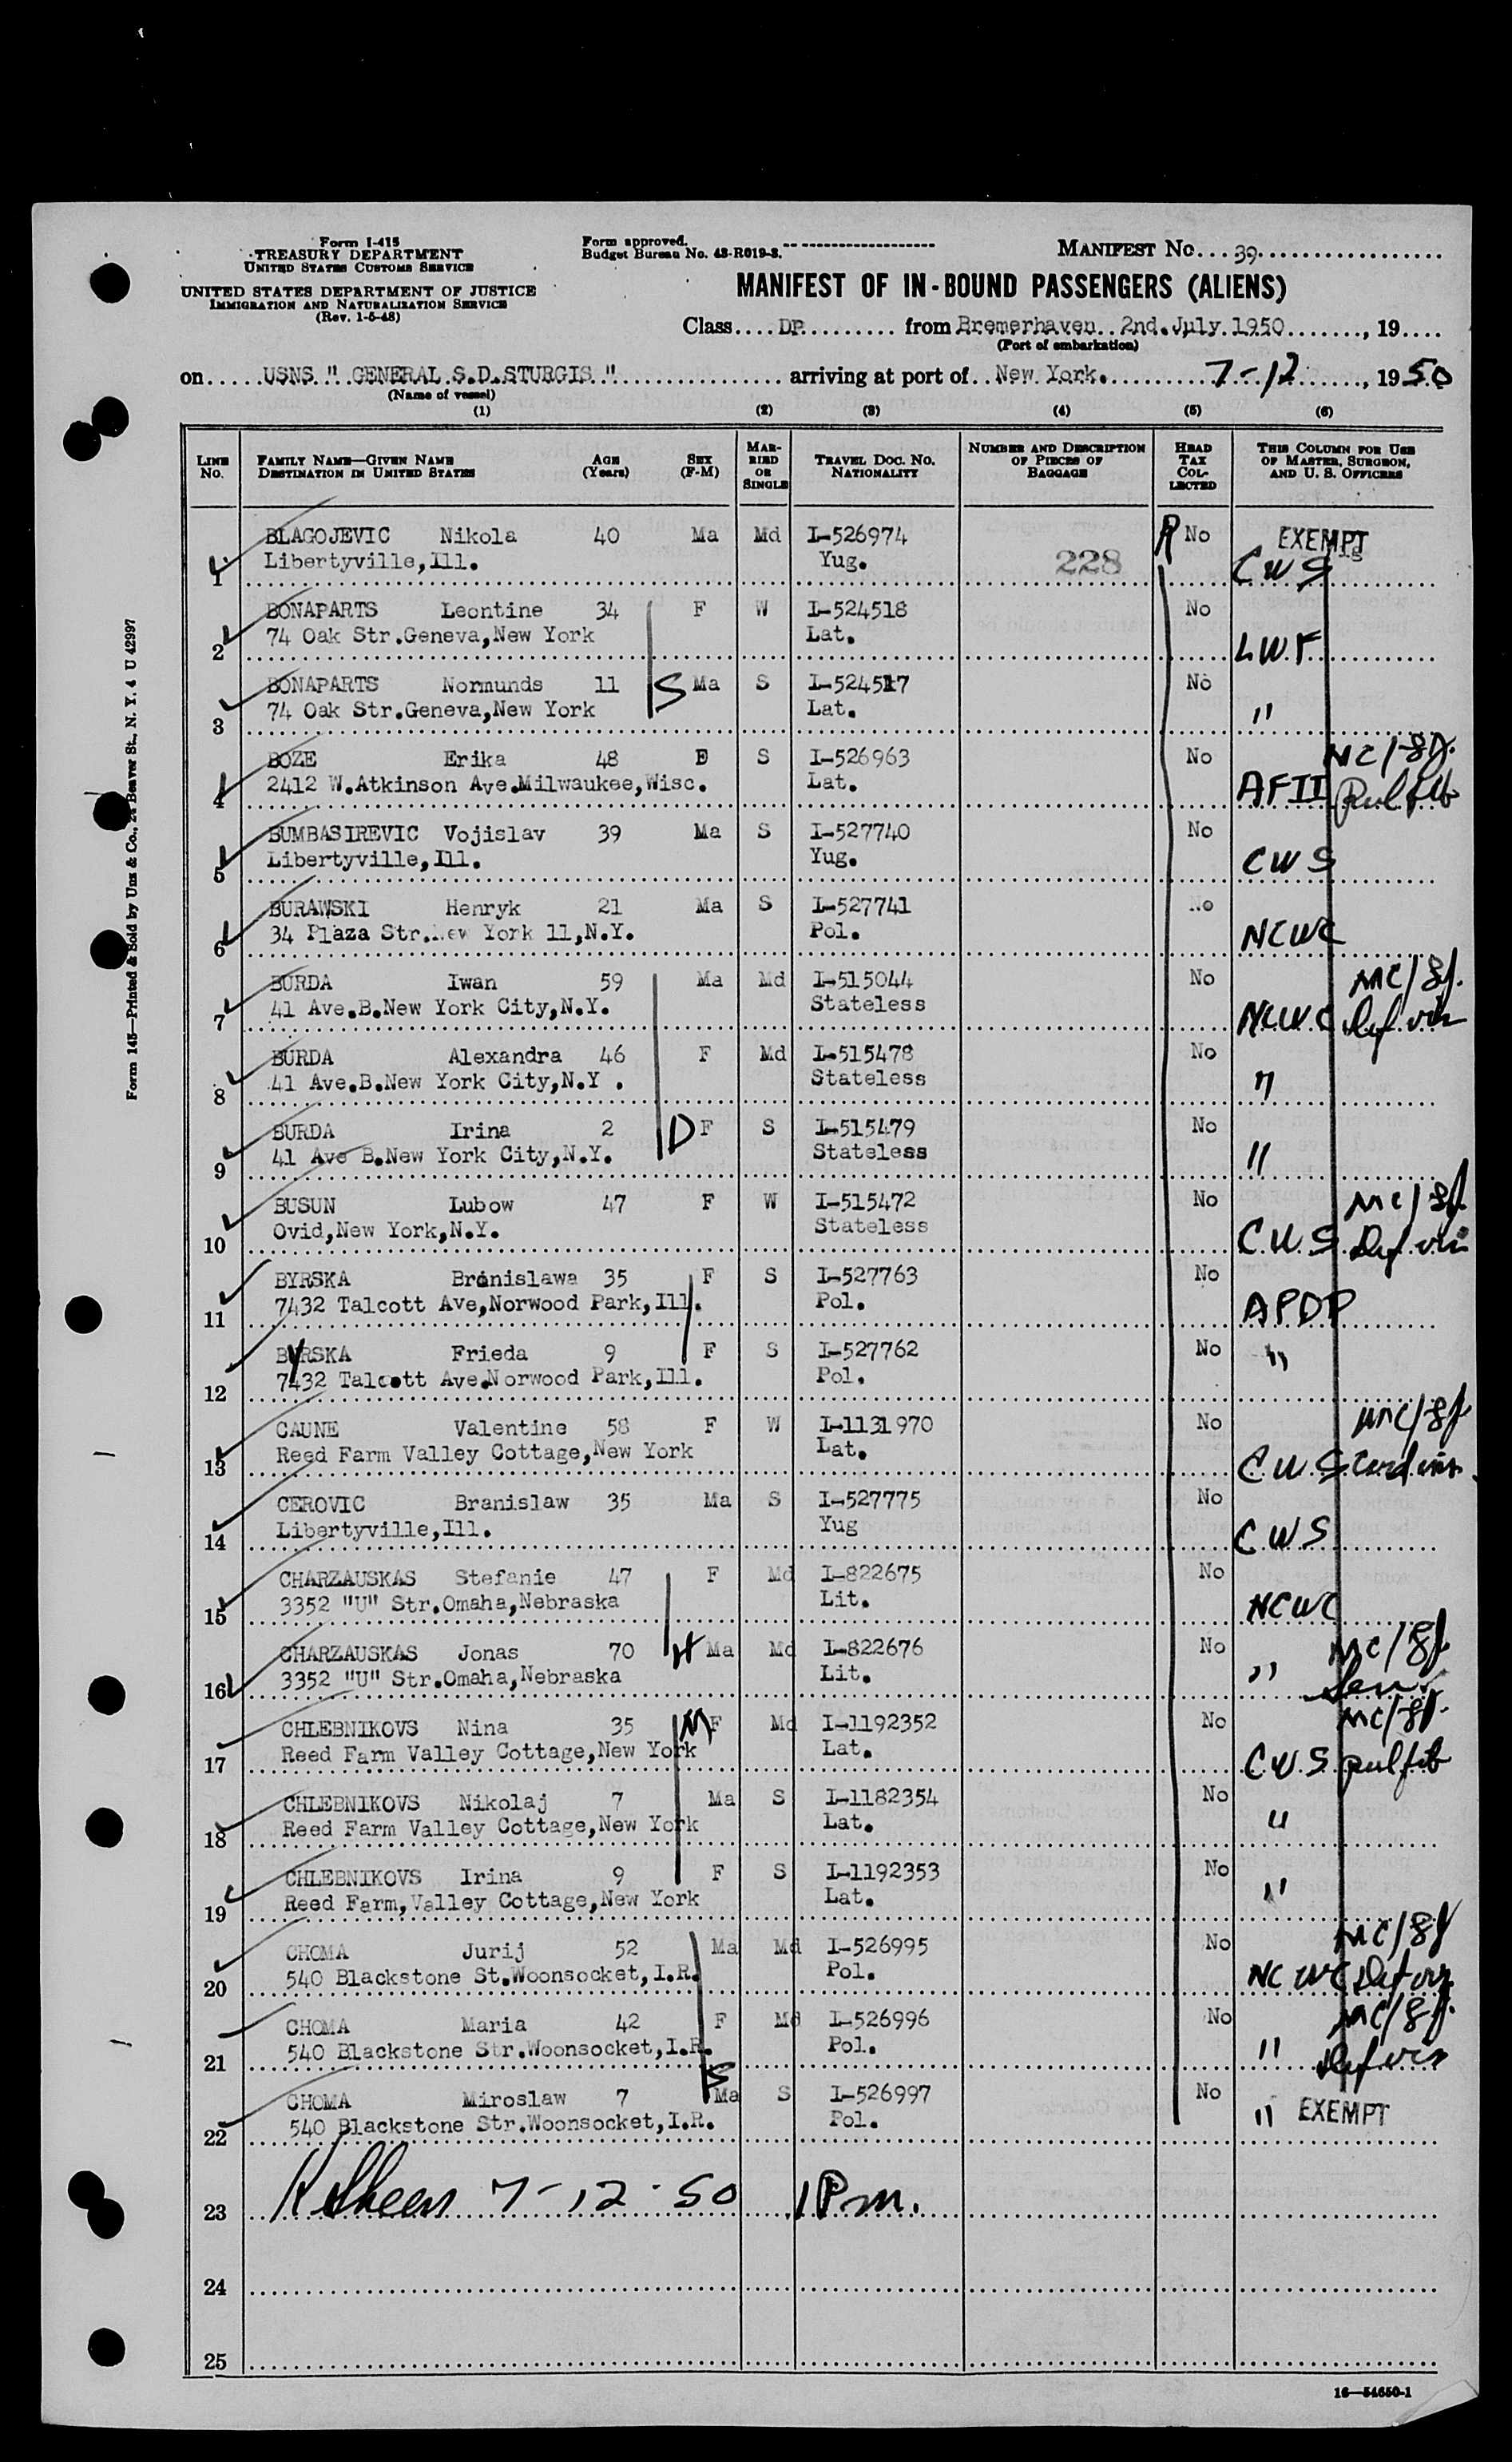 Form I-415
TREASURY DEPARTMENT
UNITED STATES CUSTOMS SERVICE
UNITED STATES DEPARTMENT OF JUSTICE
IMMIGRATION AND NATURALIZATION SERVICE
(Rev. 1-5-48)
Form approved.
Budget Bureau No. 43-R019-3.
MANIFEST NO. 39
MANIFEST OF IN-BOUND PASSENGERS (ALIENS)
Class DP from Bremerhaven 2nd.July.1950, 19
(Port of embarkation)
on USNS " GENERAL S.D.STURGIS " arriving at port of New York. 7-12, 1950
(Name of vessel)
(1) (2) (3) (4) (5) (6)
LINE NO. FAMILY NAME—GIVEN NAME DESTINATION IN UNITED STATES AGE (Years) SEX (F-M) MARRIED OR SINGLE TRAVEL DOC. NO. NATIONALITY NUMBER AND DESCRIPTION OF PIECES OF BAGGAGE HEAD TAX COLLECTED THIS COLUMN FOR USE OF MASTER, SURGEON, AND U. S. OFFICERS
BLAGOJEVIC Nikola 40 Ma Md I-526974 R No EXEMPT
1 Libertyville,Ill. Yug. 228 CWS
BONAPARTS Leontine 34 F W I-524518 No
2 74 Oak Str.Geneva,New York Lat. LWF
BONAPARTS Normunds 11 S Ma S I-524517 No
3 74 Oak Str.Geneva,New York Lat. "
BOZE Erika 48 S I-526963 No
4 2412 W.Atkinson Ave.Milwaukee,Wisc. Lat. AFII Pul fib
BUMBASIREVIC Vojislav 39 Ma S I-527740 No
5 Libertyville,Ill. Yug. CWS
BURAWSKI Henryk 21 Ma S I-527741 No
6 34 Plaza Str.New York 11,N.Y. Pol. NCWC
BURDA Iwan 59 Ma Md I-515044 No
7 41 Ave.B.New York City,N.Y. Stateless NCWC Def. vis
BURDA Alexandra 46 F Md I-515478 No
8 41 Ave.B.New York City,N.Y . Stateless "
BURDA Irina 2 D F S I-515479 No
9 41 Ave B.New York City,N.Y. Stateless "
BUSUN Lubow 47 F W I-515472 No
10 Ovid,New York,N.Y. Stateless CWS Def. vis
BYRSKA Bronislawa 35 F S I-527763 No
11 7432 Talcott Ave,Norwood Park,Ill. Pol. APDP
BYRSKA Frieda 9 F S I-527762 No
12 7432 Talcott Ave.Norwood Park,Ill. Pol. "
CAUNE Valentine 58 F W I-1131970 No
13 Reed Farm Valley Cottage,New York Lat. CWS
CEROVIC Branislaw 35 Ma S I-527775 No
14 Libertyville,Ill. Yug CWS
CHARZAUSKAS Stefanie 47 F Md I-822675 No
15 3352 "U" Str.Omaha,Nebraska Lit. NCWC
CHARZAUSKAS Jonas 70 H Ma Md I-822676 No
16 3352 "U" Str.Omaha,Nebraska Lit. "
CHLEBNIKOVS Nina 35 M F Md I-1192352 No
17 Reed Farm Valley Cottage,New York Lat. CWS pul fib
CHLEBNIKOVS Nikolaj 7 Ma S I-1182354 No
18 Reed Farm Valley Cottage,New York Lat. "
CHLEBNIKOVS Irina 9 F S I-1192353 No
19 Reed Farm,Valley Cottage,New York Lat. "
CHOMA Jurij 52 Ma Md I-526995 No
20 540 Blackstone St.Woonsocket,I.R. Pol. NCWC Def vis
CHOMA Maria 42 F Md I-526996 No
21 540 Blackstone Str.Woonsocket,I.R. Pol. " Def vis
CHOMA Miroslaw 7 S Ma S I-526997 No
22 540 Blackstone Str.Woonsocket,I.R. Pol. " EXEMPT
23 7-12-50 1 Pm.
24
25
16—54650-1
Form 145—Printed & Sold by Unz & Co., 24 Beaver St., N. Y. 4 U 42997